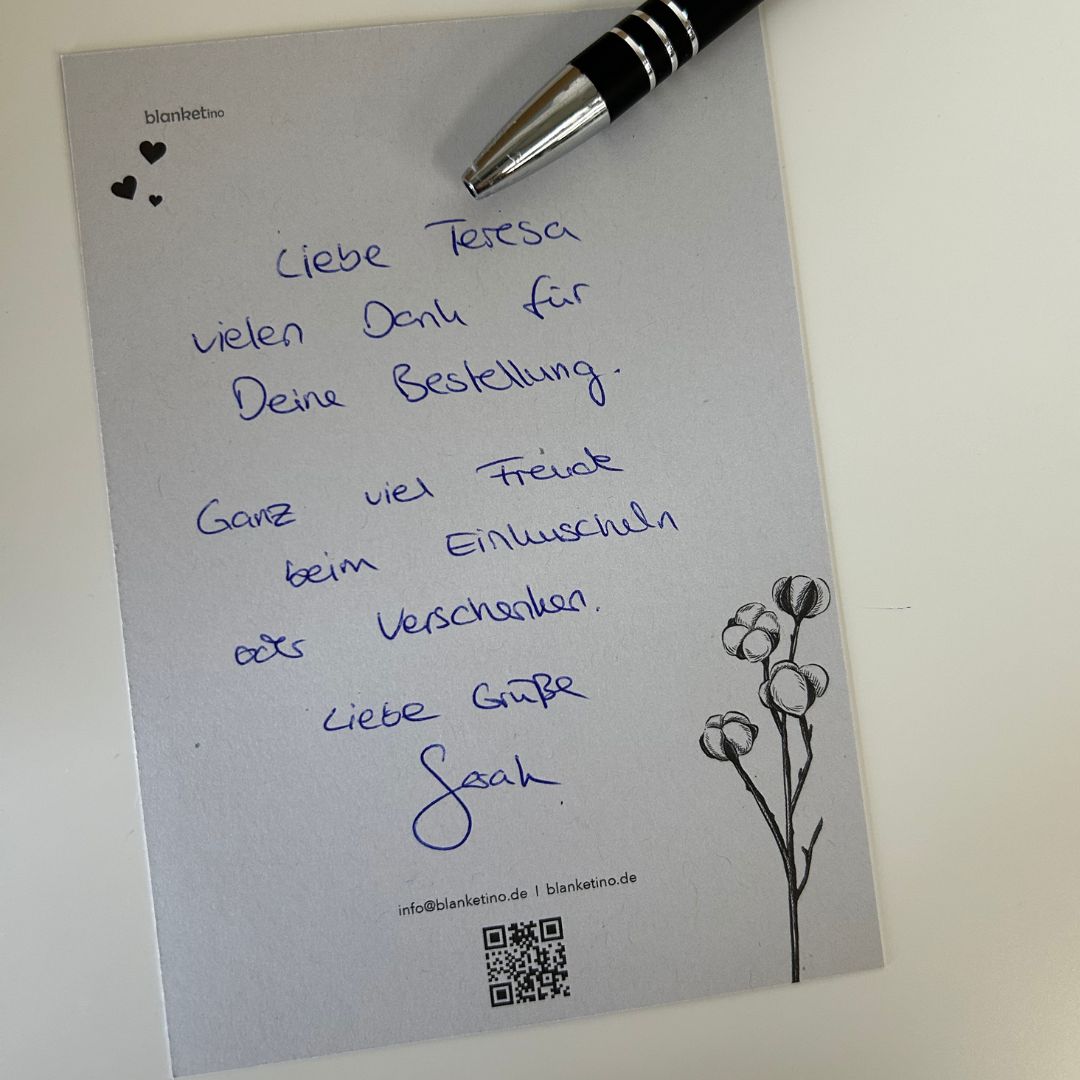 blanketino
Liebe Teresa
vielen Dank für
Deine Bestellung.
Ganz viel Freude
beim Einkuscheln
oder Verschenken.
Liebe Grüße
Sarah
info@blanketino.de | blanketino.de